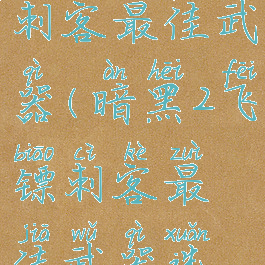 刺客最佳武
qì àn hēi fēi
器(暗黑2飞
biāo cì kè zuì
镖刺客最
jiā wǔ qì xuǎn
佳武器选